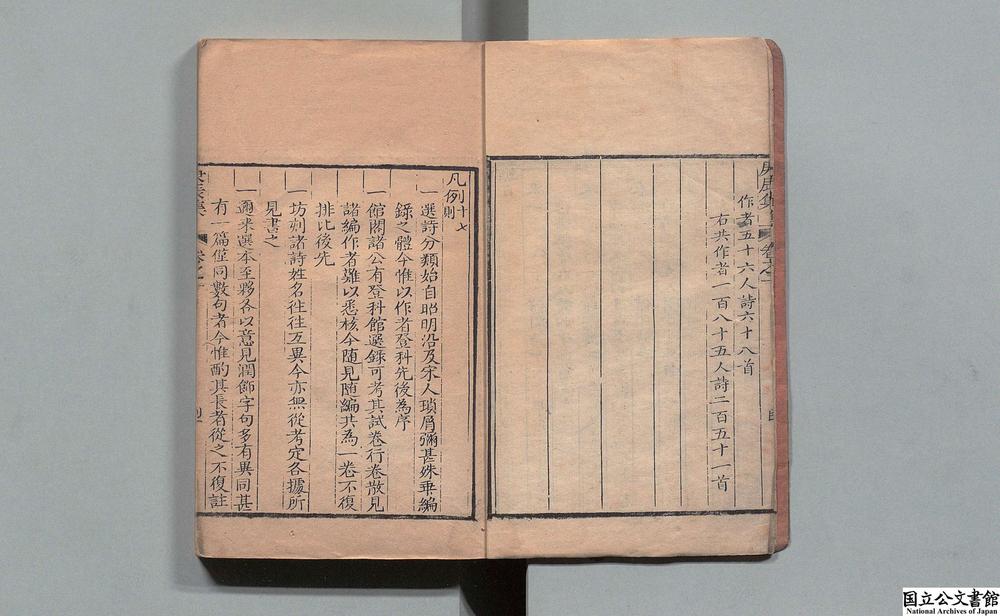 作者五十六人詩六十八首
右共作者一百八十五人詩二百五十一首
凡例十七則
一選詩分類始自昭明沿及宋人瑣屑彌甚殊乖編
錄之體今惟以作者登科先後為序
一館閣諸公有登科館選錄可考其試卷行卷散見
諸編作者難以悉核今随見随編共為一卷不復
排比後先
一坊刻諸詩姓名往往互異今亦無從考定各據所
見書之
一邇來選本至夥各以意見潤飾字句多有異同甚
有一篇僅同數句者今惟酌其長者從之不復註
国立公文書館
National Archives of Japan